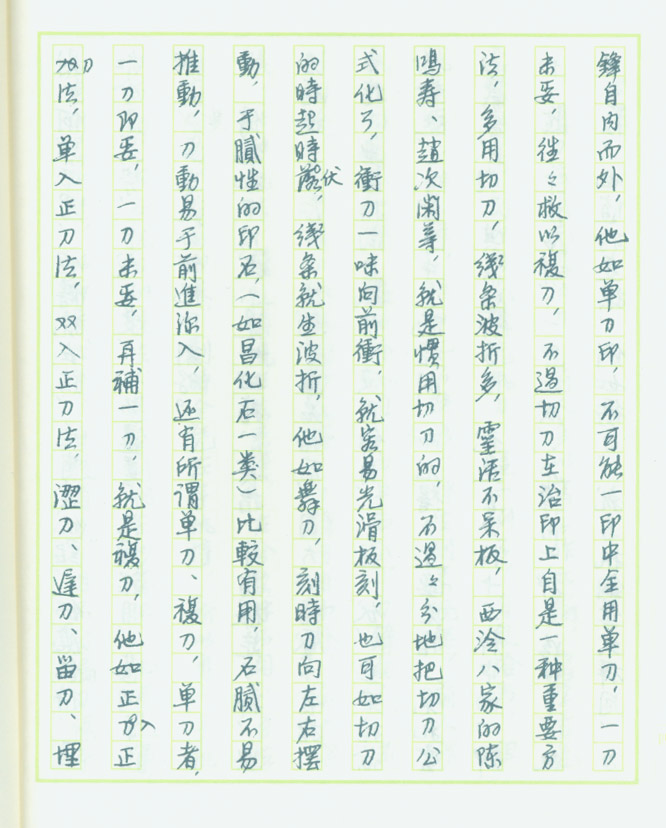 鋒自内而外，他如单刀印，不可能一印中全用单刀，一刀
未妥，往々救以複刀，不過切刀在治印上自是一种重要方
法，多用切刀，线条波折多，靈活不呆板，西泠八家的陈
鸿寿、趙次閑等，就是慣用切刀的，不過々分地把切刀公
式化了，衝刀一味向前衝，就容易光滑板刻，也可如切刀
的時起時伏，线条就生波折，他如舞刀，刻時刀向左右摆
動，于腻性的印石，（如昌化石一类）比較有用，石腻不易
推動，刀動易于前進深入，还有所谓单刀、複刀，单刀者，
一刀即妥，一刀未妥，再補一刀，就是複刀，他如正入正
刀法，单入正刀法，双入正刀法，澀刀、遲刀、留刀、埋